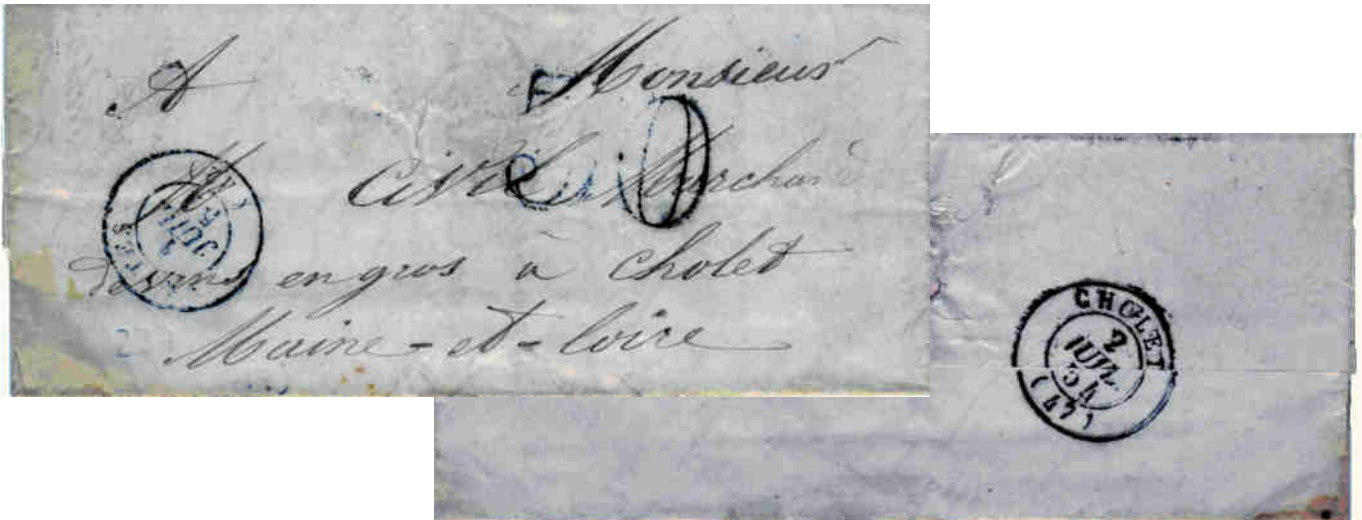 A Monsieur
Marchand
en gros à Cholet
Maine-et-loire
30
JUIL
CHOLET
2
JUIL
54
(47)